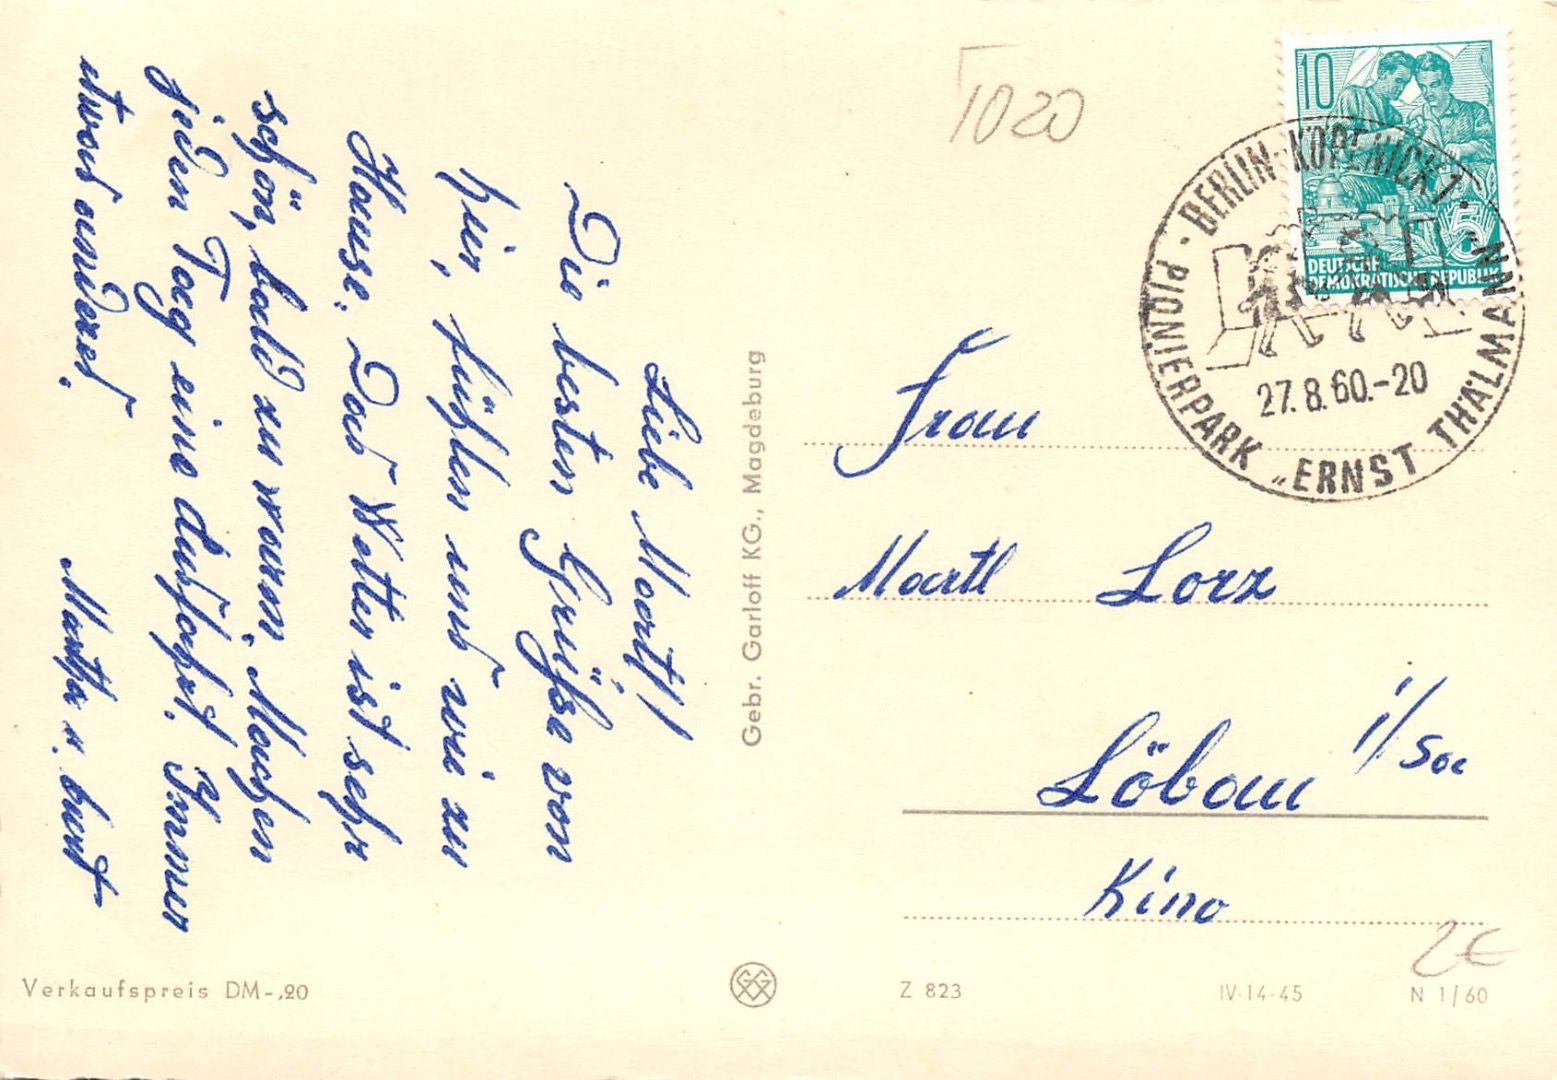 Liebe Martl!
Die besten Grüße von
hier, fühlen uns wie zu
Hause. Das Wetter ist sehr
schön, bald zu warm. Machen
jeden Tag eine Ausfahrt. Immer
etwas anderes.
Martha u.
Gebr. Garloff KG., Magdeburg
1020
10
5
DEUTSCHE
DEMOKRATISCHE REPUBLIK
BERLIN-KÖPENICK 1
PIONIERPARK „ERNST THÄLMANN
27.8.60.-20
Frau
Martl Lorz
Löbau i/Sa
Kino
2€
Verkaufspreis DM -,20
Z 823
IV-14-45
N 1/60